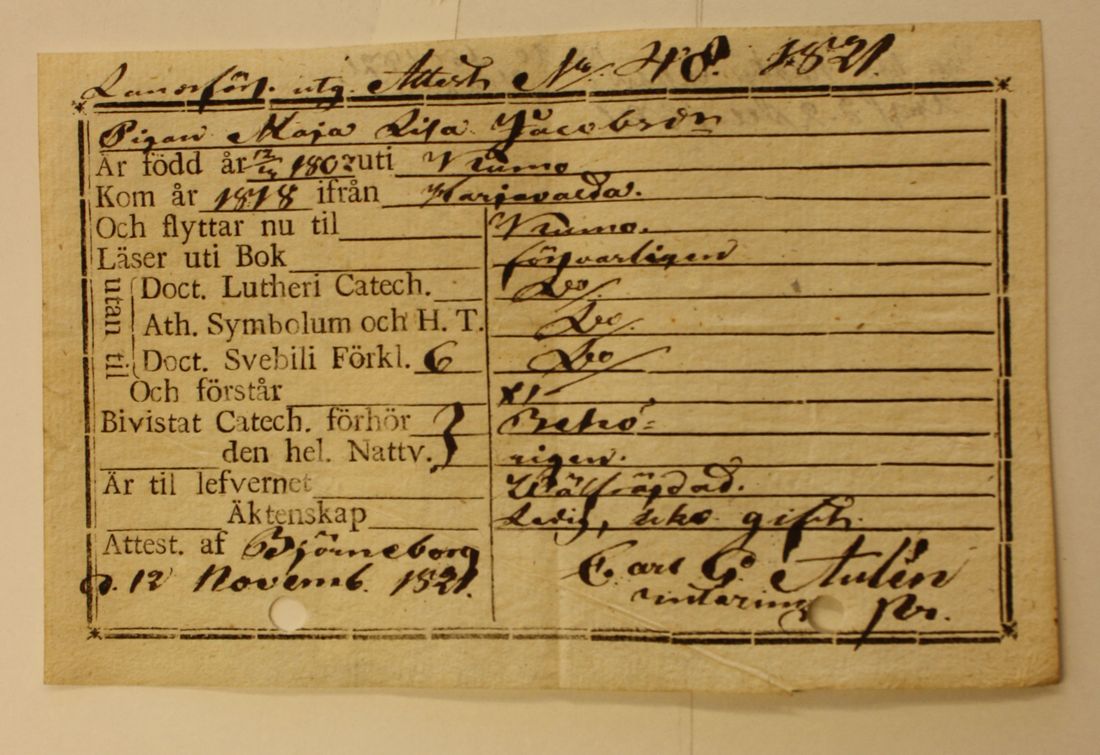 utg. Attest No 48. 1821.
Pigan Maja Lisa Jacobsdr
Är född år 1802 uti
Kom år 1818 ifrån Harjavalda.
Och flyttar nu til
Läser uti Bok försvarligen
utan til
Doct. Lutheri Catech. Do/
Ath. Symbolum och H. T. Do/.
Doct. Svebili Förkl. 6 Do/
Och förstår
Bivistat Catech. förhör Behö=
den hel. Nattv. rigen.
Är til lefvernet Wälfräjdad.
Äktenskap Ledig, icke gift.
Attest. af Björneborg
d. 12 Novemb. 1821.
Carl G. Aulén